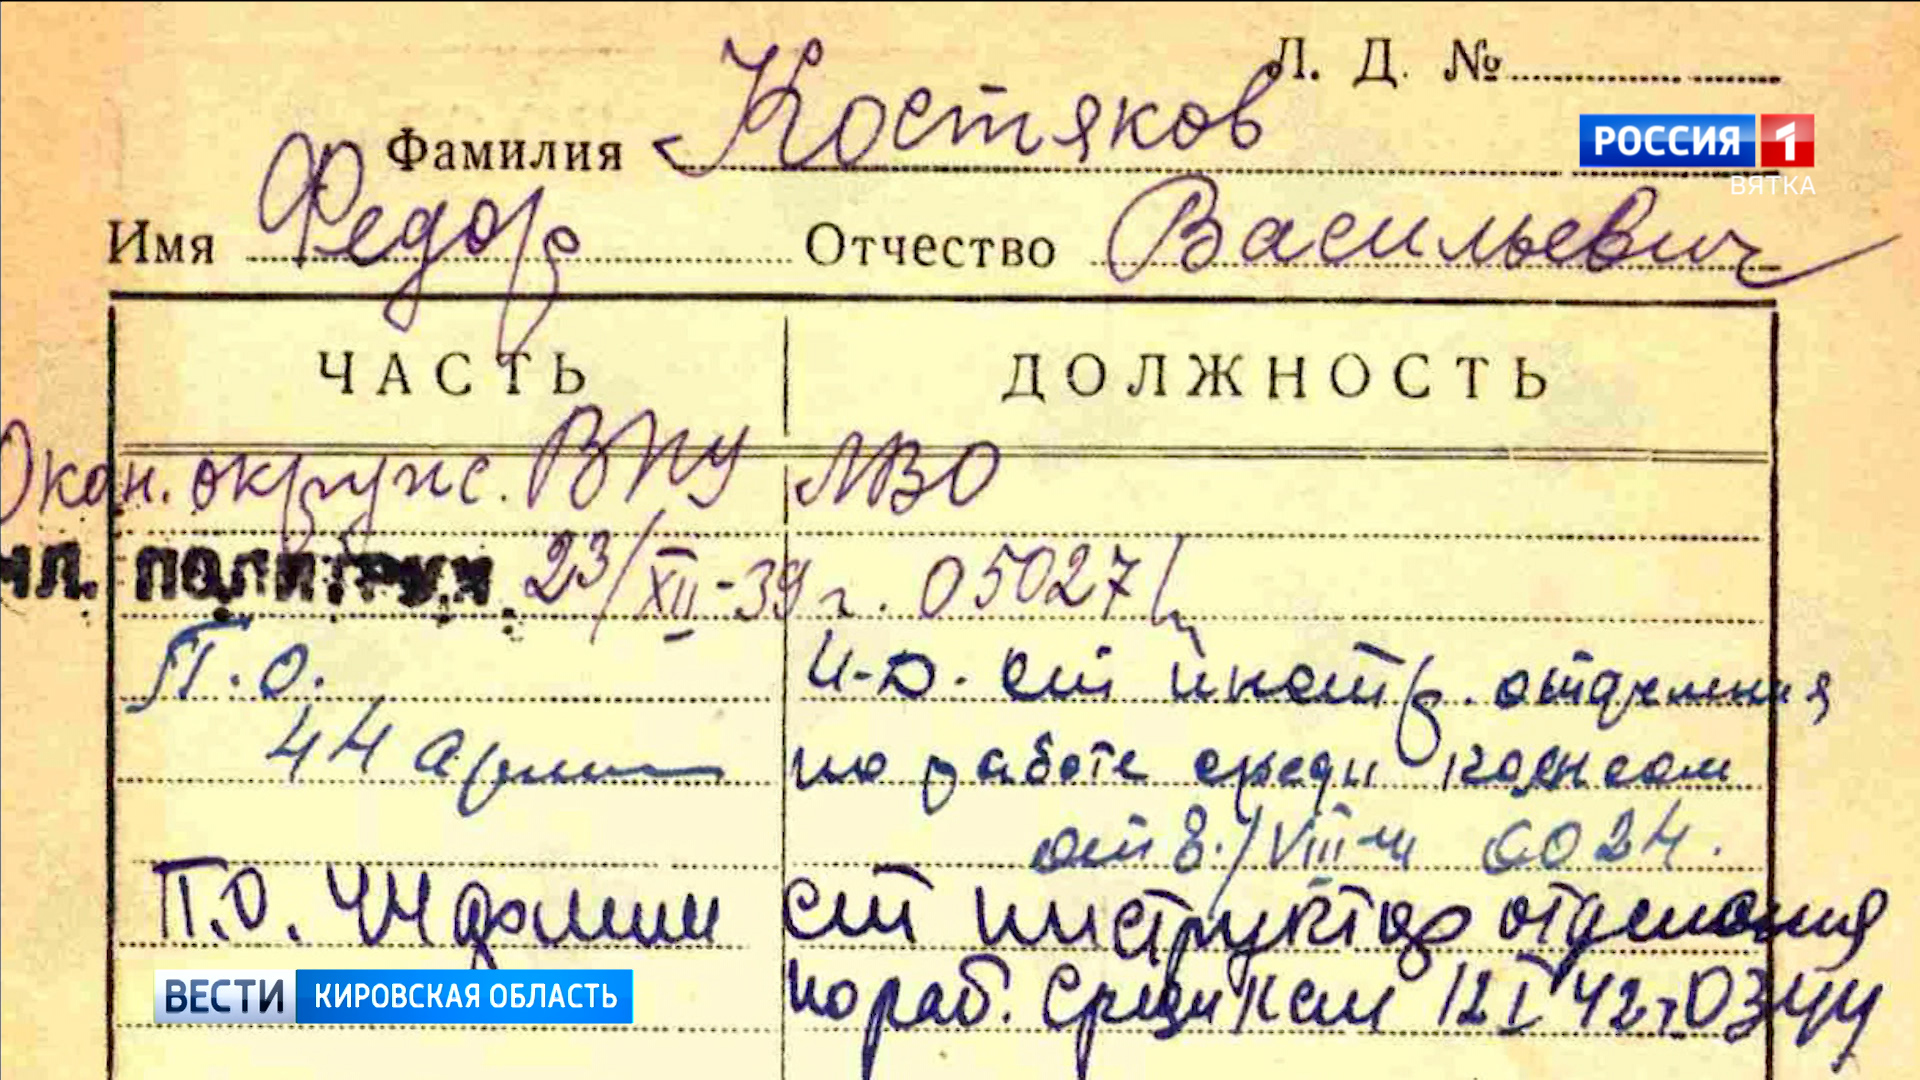 Л. Д. №
Фамилия Костяков
РОССИЯ 1
ВЯТКА
Имя Федор Отчество Васильевич
ЧАСТЬ ДОЛЖНОСТЬ
Окон. окруж. ВПУ ЛВО
мл. ПОЛИТРУК 23/XII-39 г. 05027
П. О. И.О. ст инстр. отделения
44 армии по работе среди
от 8/VIII-41 0024.
П.О. 44 армии ст инструктор отделения
по раб. среди 12 I 42 г 0344
ВЕСТИ КИРОВСКАЯ ОБЛАСТЬ